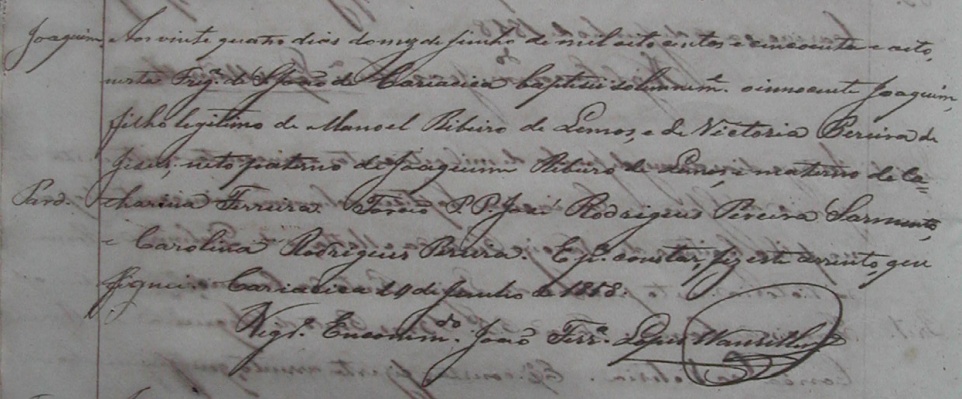 Joaquim. Aos vinte quatro dias do mez de Junho de mil oito centos e cincoenta e oito,
nesta Freg.ª de S. João de Cariacica baptisei solemnem.e o innocente Joaquim,
filho legitimo de Manoel Ribeiro de Lemos, e de Victoria Pereira de
Jesus; neto paterno de Joaquim Ribeiro de Lemos, e materno de Ca=
Pard. tharina Ferreira. Forão P.P. José Rodrigues Pereira Sarmento,
e Carolina Rodrigues Pereira. E p.ª constar, fiz este assento, que
firmei. Cariacica 24 de Junho de 1858.
Vigr.º Encomm.do João Ferr.ª Lopes